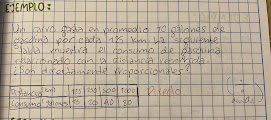 EJEMPLO:
Un carro gasta en promedio 10 galones de
gasolina por cada 125 km. La siguiente
tabla muestra el consumo de gasolina
relacionado con la distancia recorrida.
¿Son directamente proporcionales?
Distancia (km) 125 250 500 1000
Consumo 20 40 80